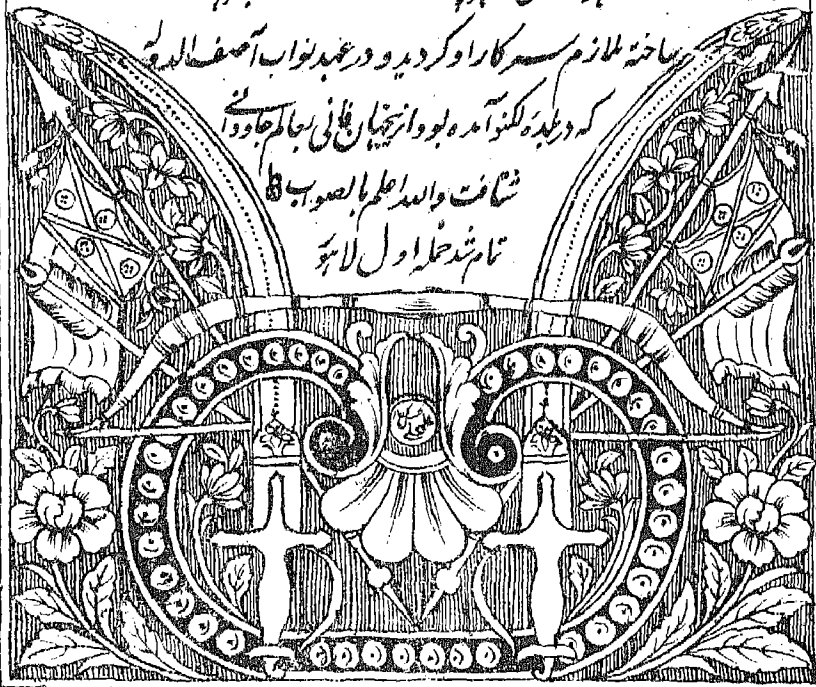 ساخته ملازم سرکار او گردید و در عهد نواب آصف الدوله
که در بلده لکنو آمده بود ازینجهان فانی بعالم جاودانے
شتافت والله اعلم بالصواب
تمام شد حمله اول